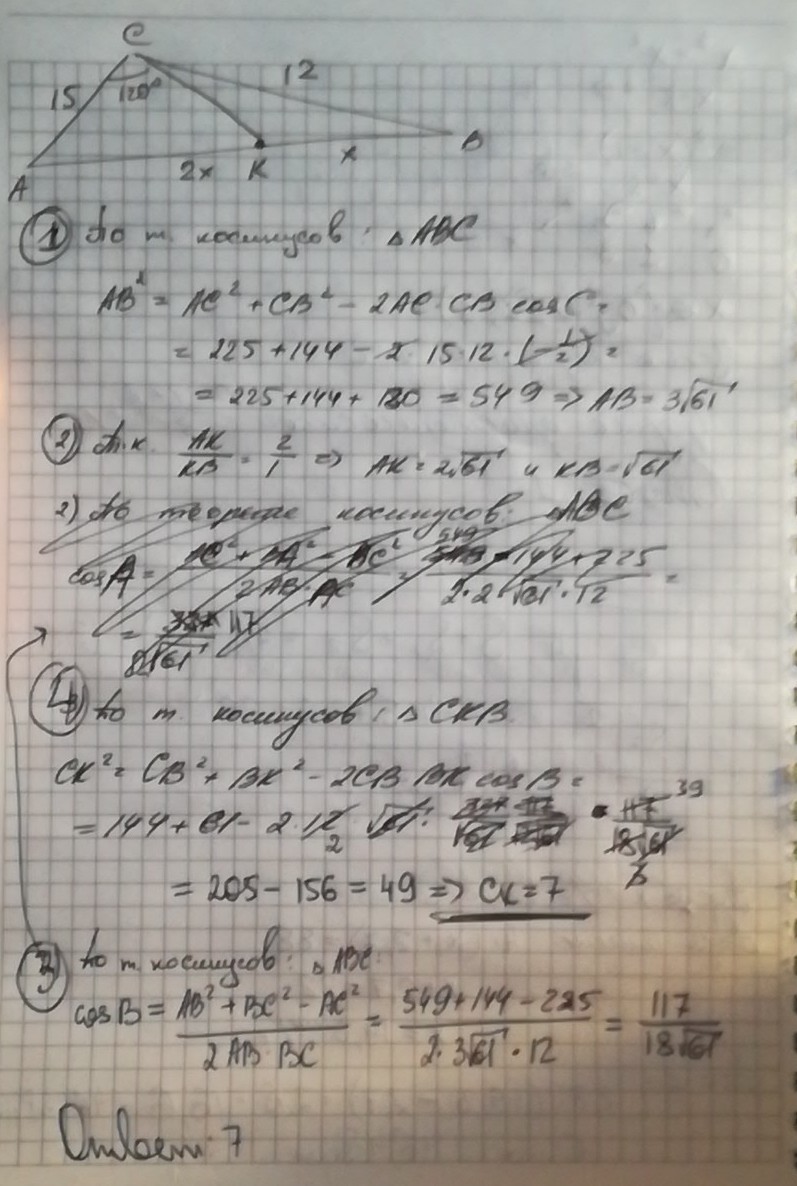 C
15 120° 12
A 2x K x B
1 По т. косинусов: △ABC
AB² = AC² + CB² - 2AC·CB cosC =
= 225 + 144 - 2·15·12·(-1/2) =
= 225 + 144 + 180 = 549 => AB = 3√61
2) Т.к. AK/KB = 2/1 => AK = 2√61 и KB = √61
2) По теореме косинусов: △ABC
4) По т. косинусов: △CKB
CK² = CB² + BK² - 2CB·BK cosB =
= 144 + 61 - 2·12·√61 · 117/18√61
2 39
= 205 - 156 = 49 => CK = 7
3) По т. косинусов: △ABC:
cosB = AB² + BC² - AC² / 2AB·BC = 549 + 144 - 225 / 2·3√61·12 = 117 / 18√61
Ответ: 7